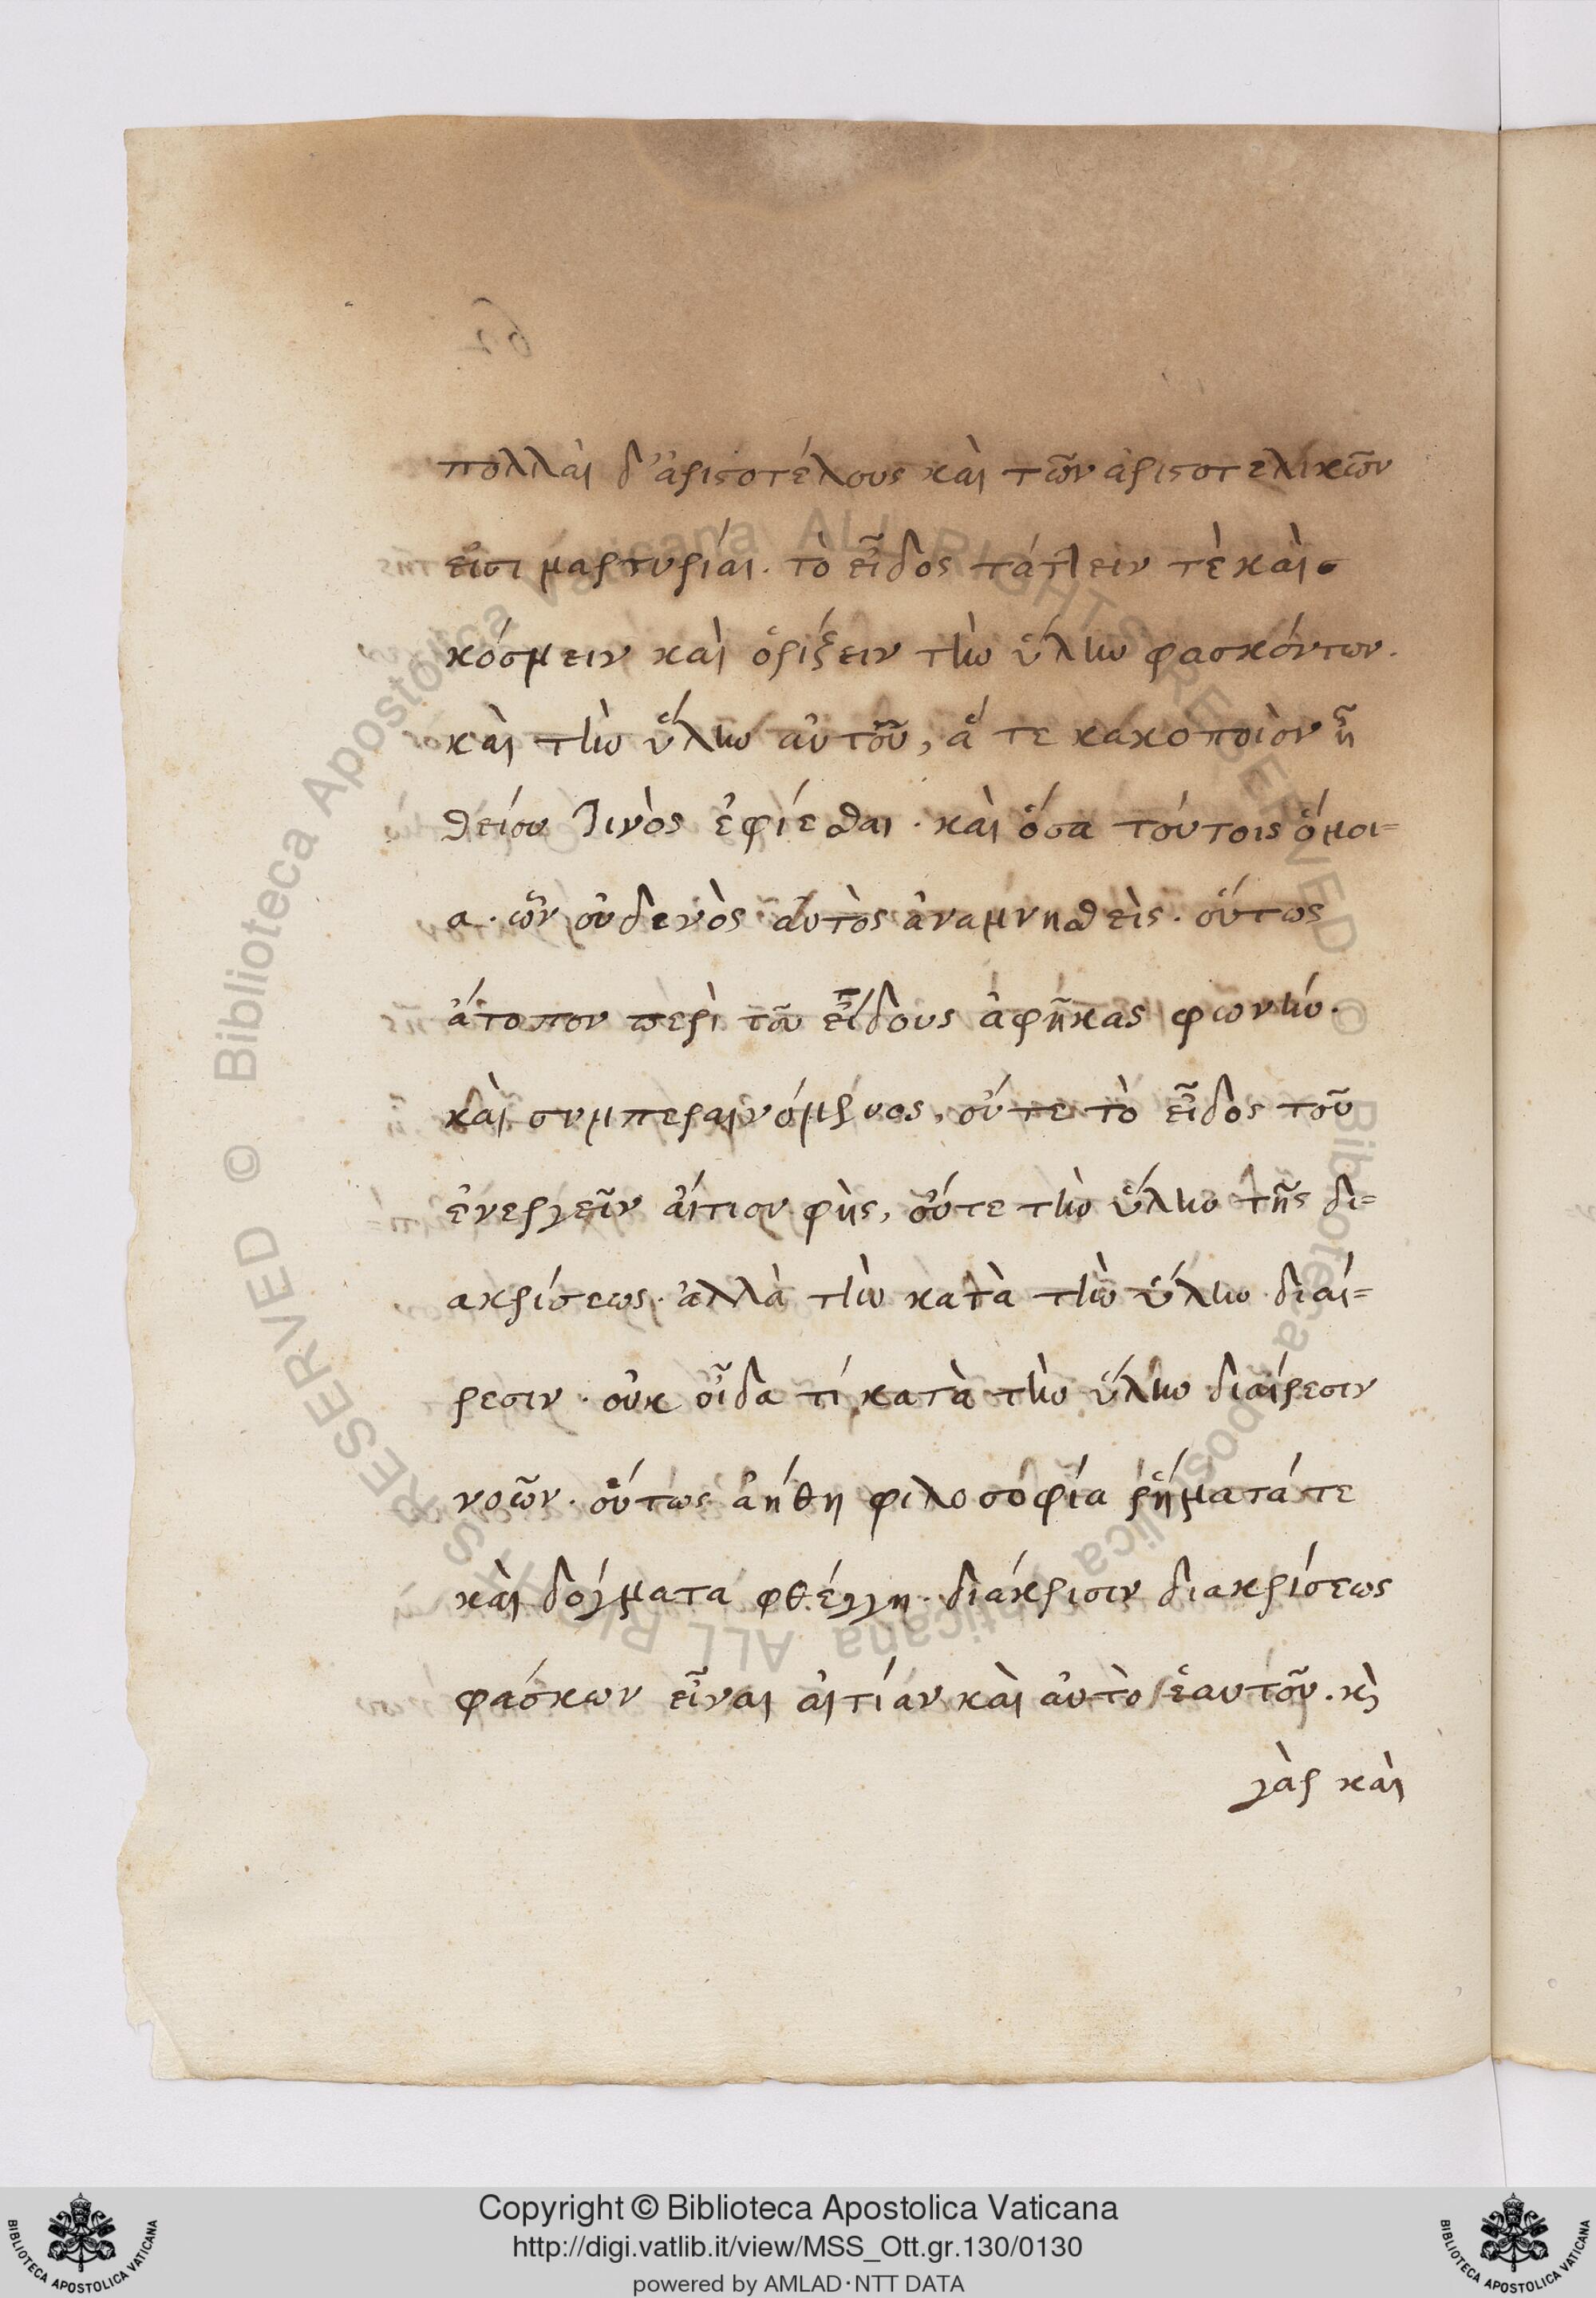 πολλαὶ δ' ἀριστοτέλους καὶ τῶν ἀριστοτελικῶν
εἰσι μαρτυρίαι. τὸ εἶδος τάττειν τὲ καὶ σ
κόσμειν καὶ ὁρίζειν τὴν ὕλην φασκόντων.
καὶ τὴν ὕλην αὐτοῦ, ἅ τε κακοποιὸν ἢ
θείου τινὸς ἐφίεσθαι. καὶ ὅσα τούτοις ὅμοι=
α. ὧν οὐδενὸς αὐτὸς ἀναμνησθεὶς. οὕτως
ἄτοπον περὶ τοῦ εἴδους ἀφῆκας φωνήν.
καὶ συμπεραινόμενος, οὔτε τὸ εἶδος τοῦ
ἐνεργεῖν αἴτιον φὴς, οὔτε τὴν ὕλην τῆς δι=
ακρίσεως. ἀλλὰ τὴν κατὰ τὴν ὕλην διαί=
ρεσιν. οὐκ οἶδα τί κατὰ τὴν ὕλην διαίρεσιν
νοῶν. οὕτως ἀήθη φιλοσοφία ῥήματά τε
καὶ δόγματα φθέγγη. διάκρισιν διακρίσεως
φάσκων εἶναι αἰτίαν καὶ αὐτὸ ἑαυτοῦ. κὶ
γὰρ καὶ
Copyright © Biblioteca Apostolica Vaticana
http://digi.vatlib.it/view/MSS_Ott.gr.130/0130
powered by AMLAD·NTT DATA